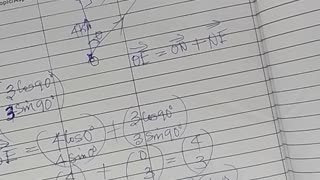 4km
O
→ → →
OE = ON + NE
(3cos90°
3sin90°)
E = (4cos0°
4sin0°) + (3cos90°
3sin90°)
(4 + (0
3) = (4
3)